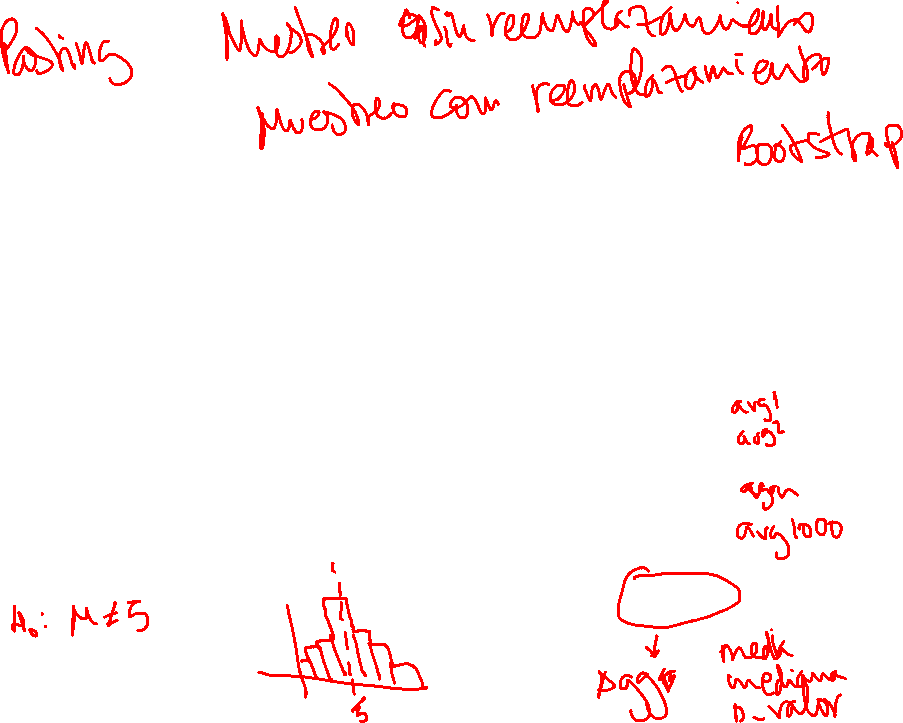 Pasting Muestreo sin reemplazamiento
Muestreo con reemplazamiento
Bootstrap
avg1
avg2
avgn
avg1000
H₀: μ ≠ 5
5
media
mediana
p-valor